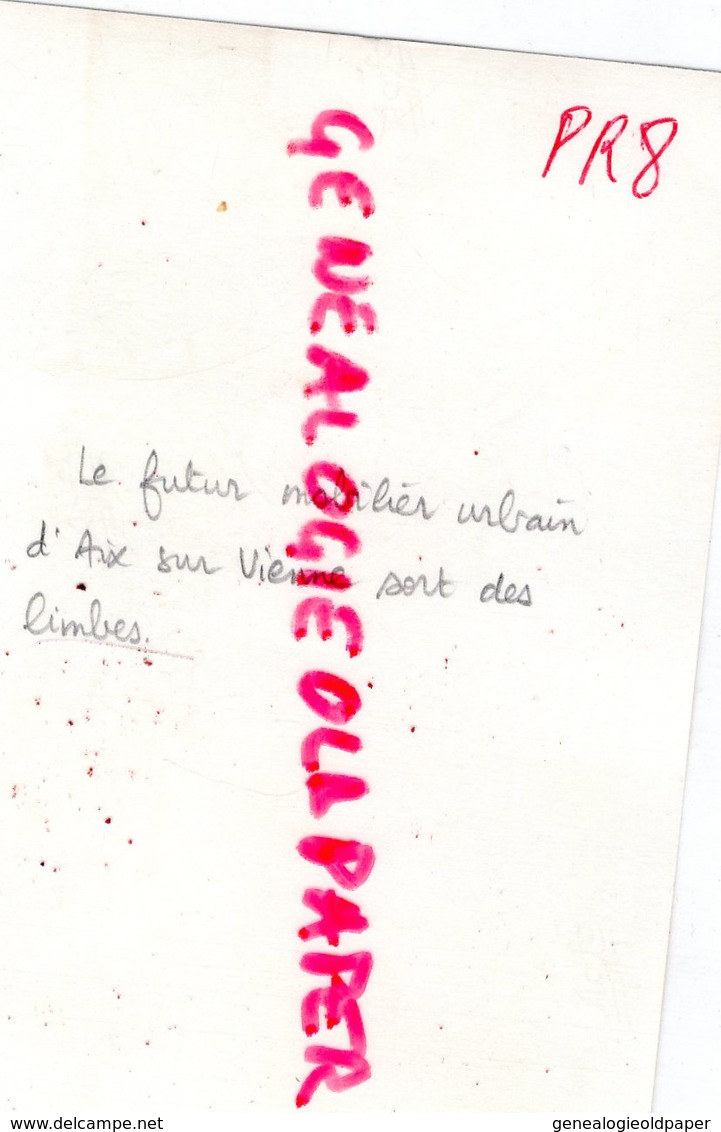 PR8
GENEALOGIEOLDPAPER
Le futur mobilier urbain
d'Aix sur Vienne sort des
limbes.
delcampe.net
genealogieoldpaper